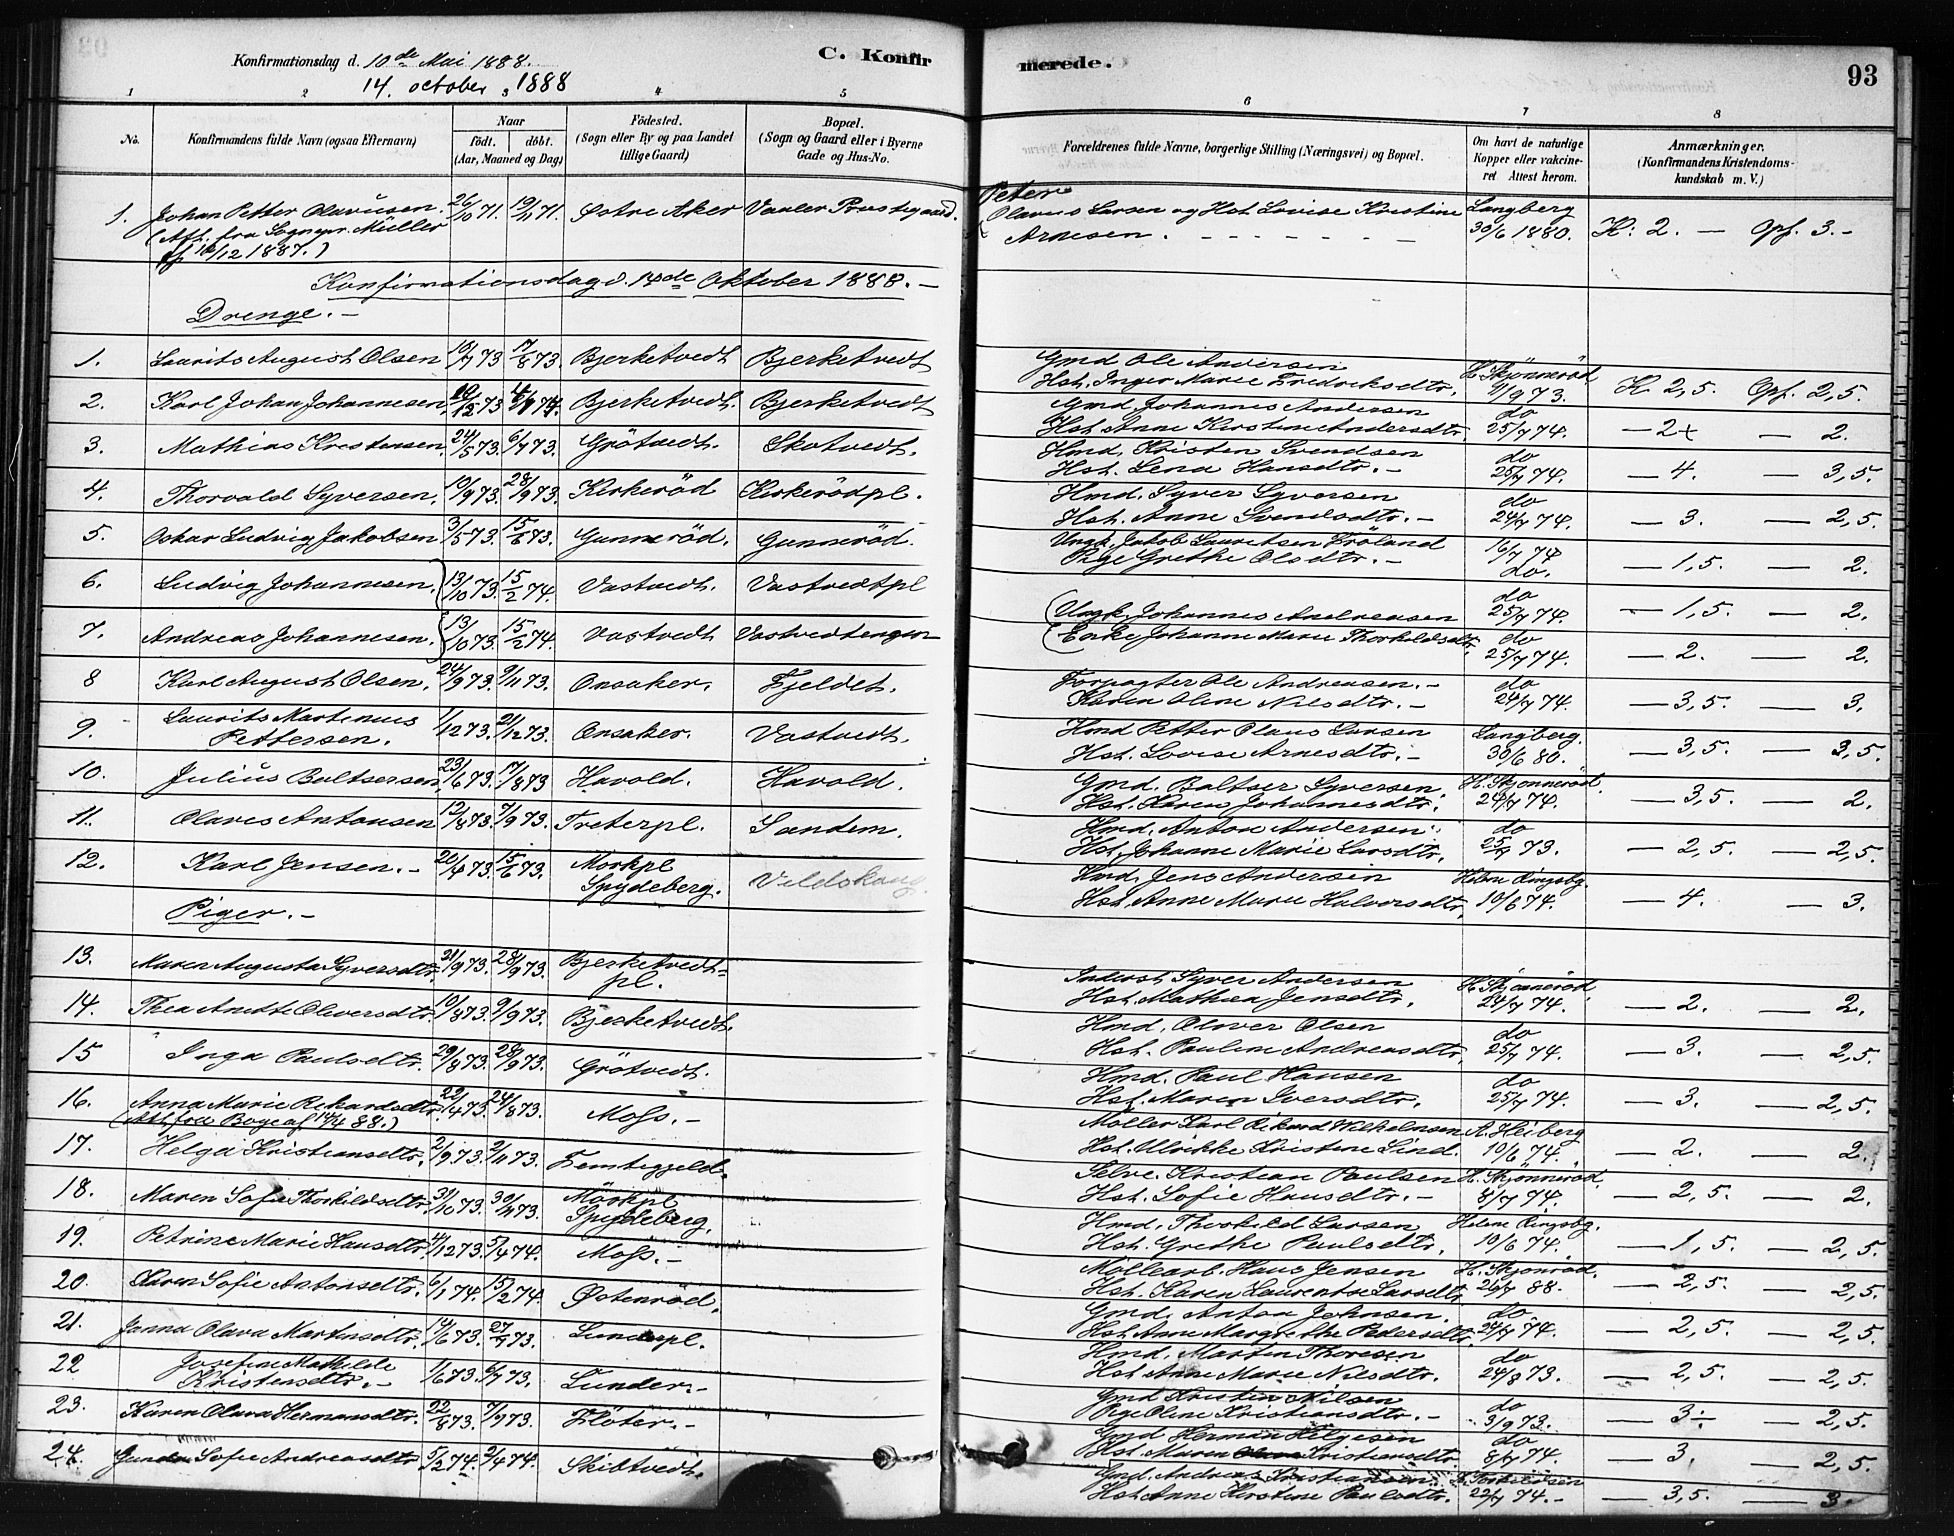 Konfirmationsdag d. 10de Mai 1888.
14. october 1888
C. Konfirmerede.
93
1 2 3 4 5 6 7 8
No.
Konfirmandens fulde Navn (ogsaa Efternavn)
Naar
født. døbt.
(Aar, Maaned og Dag)
Födested.
(Sogn eller By og paa Landet
tillige Gaard)
Bopæl.
(Sogn og Gaard eller i Byerne
Gade og Hus-No.
Forældrenes fulde Navne, borgerlige Stilling (Næringsvei) og Bopæl.
Om havt de naturlige
Kopper eller vakcine-
ret Attest herom.
Anmærkninger.
(Konfirmandens Kristendoms-
kundskab m. V.)
1. Johan Petter Olaussen. 26/10 71. 19/11 71. Østre Aker Vaaler Præstegaard. Peter Olaves Larsen og Hst. Lovise Kristine Langberg
(Att. fra Sognepr. Müller Arnesen. 30/6 1880. K: 2. — Opf. 3.-
af 16/12 1887.)
Konfirmationsdag d. 14de Oktober 1888.-
Drenge.-
1. Laurits August Olsen 10/7 73 17/8 73. Bjerketvedt Bjerketvedt Gmd Ole Andersen H. Skjønnerød
Hst. Inger Marie Fredriksdtr. 11/9 73. K. 2,5. Opf. 2,5.
2. Karl Johan Johannesen 12 73 74. Bjerketvedt. Bjerketvedt Gmd Johannes Andersen do
Hst. Anne Kirstine Andersdtr. 25/7 74. — 2+ — 2.
3. Mathias Kristensen. 24/5 73. 6/7 73. Grötvedt. Skotvedt. Hmd. Kristen Svendsen do
Hst. Lena Hansdtr.- 25/7 74. — 4. — 3,5.
4. Thorvald Syversen. 10/9 73. 28/9 73. Kirkeröd Kirkerödpl. Hmd. Syver Syversen do
Hst. Anne Svendsdtr.- 24/7 74. — 3. — 2,5.
5. Oskar Ludvig Jakobsen 3/5 73. 15/6 73. Gunneröd. Gunneröd. Ungk. Jakob Lauritsen Fröland 16/7 74
Pige Grethe Olsdtr.- do. — 1,5. — 2.
6. Ludvig Johannesen. 13/10 73. 15/2 74. Vastvedt. Vastvedtpl do
Ungk. Johannes Andreassen 25/7 74. — 1,5. — 2.
7. Andreas Johannesen. 13/10 73. 15/2 74. Vastvedt Vastvedtengen Enke Johanne Marie Thorkildsdtr. do
25/7 74. — 2. — 2.
8 Karl August Olsen. 24/9 73. 9/11 73. Onsaker. Fjeldet. Forpagter Ole Andreasen.- do
Karen Oline Nilsdtr.- 24/7 74. — 3,5. — 3.
9. Laurits Martinius 1/12 73. 21/12 73. Onsaker. Vastvedt. Hmd Petter Olaus Larsen Langberg.
Pettersen. Hst. Lovise Arnesdtr.- 30/6 80. — 3,5. — 3,5.
10. Julius Baltsersen 23/6 73. 17/8 73 Havold. Havold. Gmd. Baltser Syversen. H. Skjönneröd.
Hst. Karen Johannesdtr. 24/7 74. — 3,5. — 2.
11. Olaves Antonsen 12/8 73. 7/9 73. Treterpl. Sandem. Hmd. Anton Andersen. do
Hst. Johanne Marie Larsdtr. 73. — 2,5. — 2,5.
12. Karl Jensen.- 20/4 73. 15/6 73. Morkpl Hmd. Jens Andersen Helene Ringsbg.
Spydeberg. Veldskaug. Hst. Anne Marie Halvorsdtr. 10/6 74. — 4. — 3.
Piger.-
13. Maren Augusta Syversdtr. 21/9 73. 28/9 73. Bjerketvedt- Inderst Syver Andersen H. Skjönneröd
pl. Hst. Mathea Jensdtr. 24/7 74. — 2. 2.
14. Thea Anette Oliversdtr. 10/8 73. 9/9 73. Bjerketvedt. Hmd. Oliver Olsen do
Hst. Pauline Andreasdtr. 25/7 74. — 3. — 2,5.
15 Inga Paulsdtr. 29/8 73. 28/9 73. Grötvedt. Hmd. Paul Hansen do
Hst. Maren Iversdtr. 25/7 74. — 3. — 2,5.
16. Anna Marie Rikardsdtr. 22/4 73. 24/8 73. Moss.- Möller Karl Rikard Wilhelmsen A. Heiberg
(Att. fra Boge af 14/4 88.) Hst. Ulrikke Kristine Lind. 10/6 74. — 2. — 2.
17. Helga Kristiansdtr. 2/9 73. 9/11 73. Tembiegjeld. Selve. Kristian Paulsen H. Skjönneröd.
Hst. Sofie Hansdtr.- 8/7 74. — 2,5. — 2.
18. Maren Sofie Thorkildsdtr. 31/10 73. 30/11 73. Mörkpl Hmd. Thorkild Larsen Helene Ringsbg.
Spydeberg. Hst. Grethe Paulsdtr. 10/6 74. — 1,5. — 2,5.
19. Petrine Marie Hansdtr. 4/12 73. 5/4 74. Moss.- Möllearb. Hans Jensen H. Skjönröd.
Hst. Karen Laurentse Larsdtr. 26/7 88. — 2,5. — 2,5.
20. Karen Sofie Antonsdtr. 6/1 74. 15/2 74. Østenröd. Gmd. Anton Johnsen. do.
Hst Anne Margrethe Pedersdtr. 24/7 74. — 2,5. — 2,5.
21. Janna Olava Martinsdtr. 14/6 73. 27/7 73. Lunderpl. Hmd. Martin Thoresen do
Hst Anne Marie Nilsdtr. 24/8 73. — 2,5. — 2,5.
22 Josefine Mathilde 1/6 73. 6/7 73. Lunder.- Gmd Kristen Nilsen do
Kristensdtr.- Pige Oline Kristiansdtr.- 3/9 73. — 3÷ — 2,5.
23. Karen Olava Hermansdtr. 22/8 73. 7/9 73. Flöter.- Gmd Herman Helgesen do
Hst. Maren Kristiansdtr. 8/7 74. — 3. — 2,5.
24. Sofie Andreasdtr. 5/2 74. 9/4 74. Skibtvedt. Gmd. Andreas Kristiansen.
Hst Anne Kirstine Paulsdtr. 22/7 74.- — 3,5. — 3.